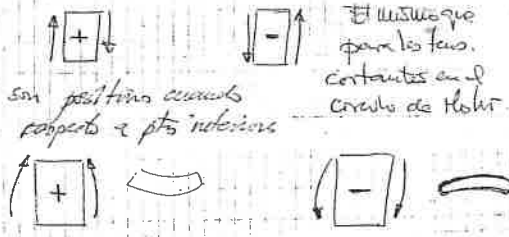 +
-
El mismo que
para las tens.
cortantes en el
circulo de Mohr.
son positivos cuando
respecto a pts interiores
+
-